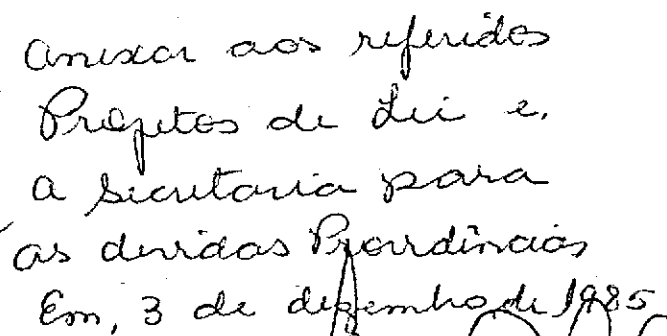 Anexar aos referidos
Projetos de Lei e,
a Secretaria para
as devidas Providências
Em, 3 de dezembro de 1985